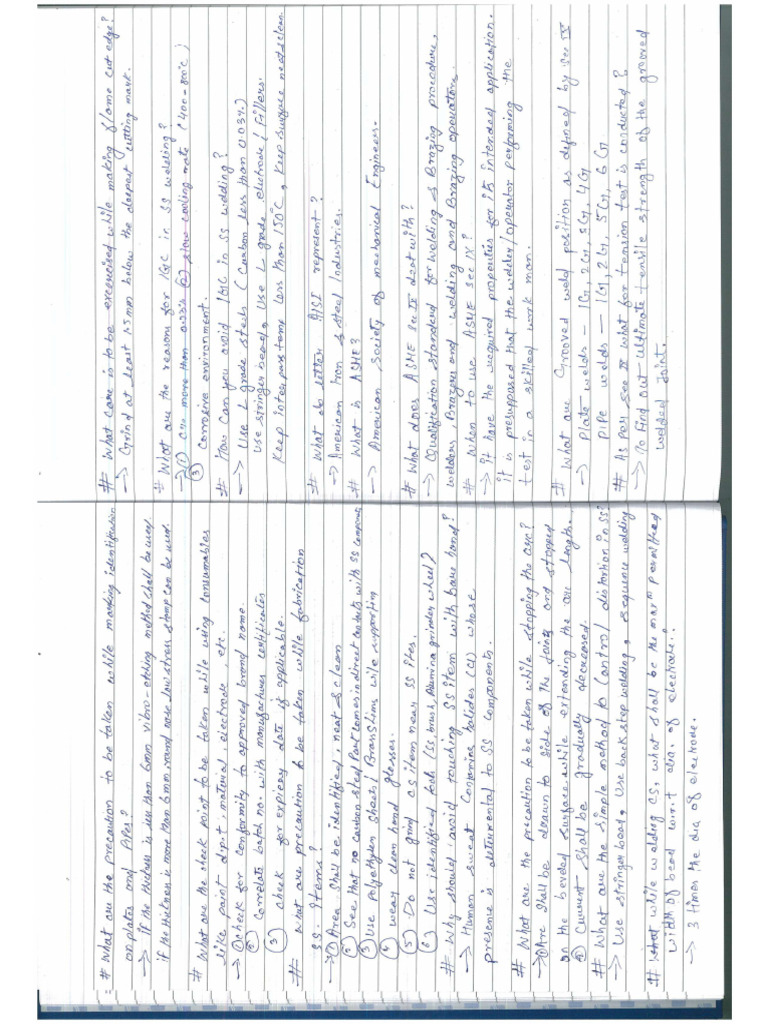 # What are the precaution to be taken while marking identification
on plates and Pipes?
→ if the thickness is less than 6mm vibro-etching method shall be used
if the thickness is more than 6mm round nose low stress stamp can be used.
# What are the check point to be taken while using consumables
like paint dipt, material, electrode, etc.
→ ① Check for conformity to approved brand name.
② Correlate batch no. with manufactures certificates
③ Check for expiery date if applicable.
# What are precaution to be taken while fabrication
S.S. Items?
→ ① Area shall be identified, neat & clean
② See that no carbon steel part comes in direct contacts with SS component
③ Use polyethylen sheets / Brass Shims while supporting
④ Wear clean hand glosses.
⑤ Do not grind CS item near SS ites.
⑥ Use identified (SS brush, Alumina grinder wheel)
# Why should avoid touching SS item with bare hand?
→ Human sweat Contanins halides (cl) whose
presense is deterimental to SS Components.
# What are the precaution to be taken while stopping the arc?
→ ① Arc Shall be drawn to side of the joints and stopped
on the beveled surface while extending the arc length.
② Current shall be gradually decreased.
# What are the simple method to Control distortion in SS?
→ Use stringer bead, Use back step welding, sequence welding
# What while welding CS, what shall be the maxm permitted
width of bead w.r.t dia. of electrode.?
→ 3 times the dia of electrode.
# What care is to be excercised while making flame cut edge?
→ Grind at least 1.5mm below the deepest cutting mark.
# What are the reasons for IGC in SS welding?
→ ① C% more than 0.03% ② slow cooling rate (400-800°C)
③ Corrosive environment.
# How can you avoid IGC in SS welding?
→ Use L grade steels (Carbon less than 0.03%.)
Use stringer bead, Use L grade electrod / fillers.
Keep interpass temp less than 150°C, Keep surface neat & clean.
# What do letter AISI represent?
→ American Iron & steel Industries.
# What is ASME?
→ American Society of mechanical Engineers.
# What does ASME sec IX deal with?
→ Qualification standard for welding & Brazing procedure,
welders, Brazers and welding and Brazing operators.
# When to use ASME sec IX?
→ It have the required properties for its intended application.
it is presupposed that the welder/operator performing the
test in a skilled work man.
# What are Grooved weld position as defined by sec IX
→ Plate welds – 1G, 2G, 3G, 4G
Pipe welds – 1G, 2G, 5G, 6G
# As per sec IX what for tension test is conducted?
→ To find out ultimate tensile strength of the grooved
welded Joint.